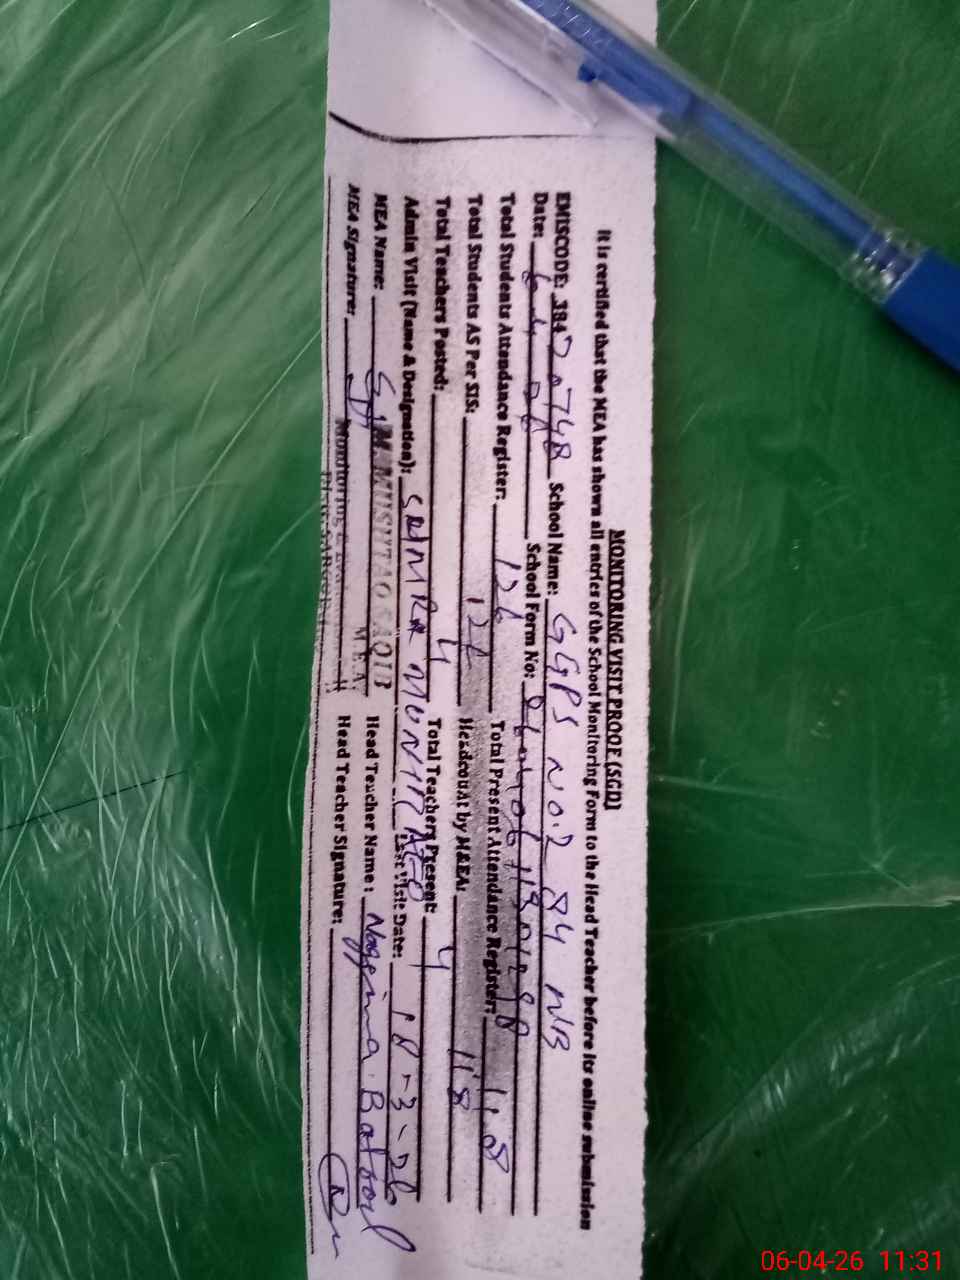 MONITORING VISIT PROOF (SGD)
It is certified that the MEA has shown all entries of the School Monitoring Form to the Head Teacher before its online submission
EMISCODE: 38420748 School Name: GGPS NO.2 84 NB
Date: 6 4 26 School Form No:
Total Students Attendance Register: 126 Total Present Attendance Register: 118
Total Students AS Per SIS: 126 Headcount by M&EA: 118
Total Teachers Posted: 4 Total Teachers Present: 4
Admin Visit (Name & Designation): SAIMRA MUNIR AEO Last Visit Date: 18-3-26
MEA Name: M. MUSHTAQ SAQIB Head Teacher Name: Nageena Batool
M.E.A.
MEA Signature: Head Teacher Signature:
Monitoring &
06-04-26 11:31